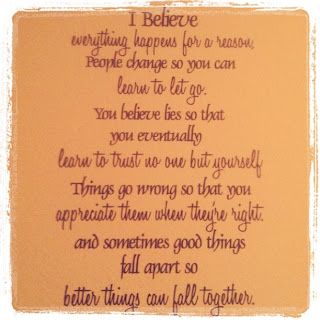 I Believe
everything happens for a reason,
People change so you can
learn to let go.
You believe lies so that
you eventually
learn to trust no one but yourself
Things go wrong so that you
appreciate them when they're right.
and sometimes good things
fall apart so
better things can fall together.